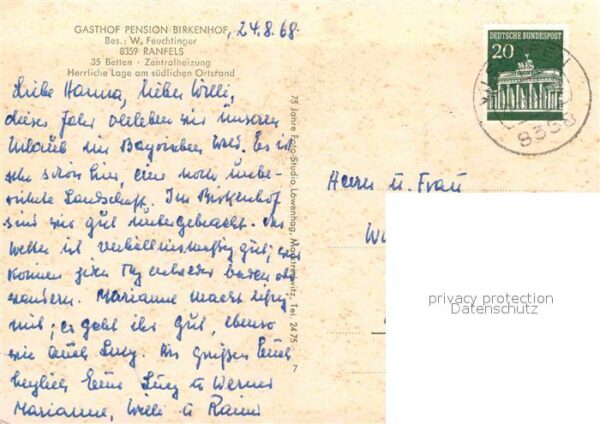 GASTHOF PENSION BIRKENHOF, 24.8.68.
Bes.: W. Feuchtinger
8359 RANFELS
35 Betten · Zentralheizung
Herrliche Lage am südlichen Ortsrand
Liebe Hanna, lieber Willi,
dieses Jahr verleben wir unseren
Urlaub im Bayrischen Wald. Es ist
sehr schön hier, eine noch unbe-
rührte Landschaft. Im Birkenhof
sind wir gut untergebracht. Das
Wetter ist verhältnismäßig gut; wir
können jeden Tag entweder baden od.
wandern. Marianne macht
mit; es geht ihr gut, ebenso
wie auch Lucy. Es grüßen Euch
herzlich Eure Lucy u Werner
Marianne, Willi u Rainer
75 Jahre Foto-Studio Löwenhag, Marktredwitz, Tel. 2475
7
DEUTSCHE BUNDESPOST
20
8358
Herrn u. Frau
privacy protection
Datenschutz